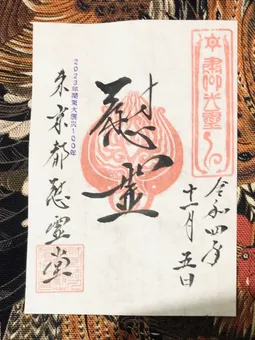 令和四年
十一月五日
慰霊
2023年関東大震災100年
東京都慰霊堂